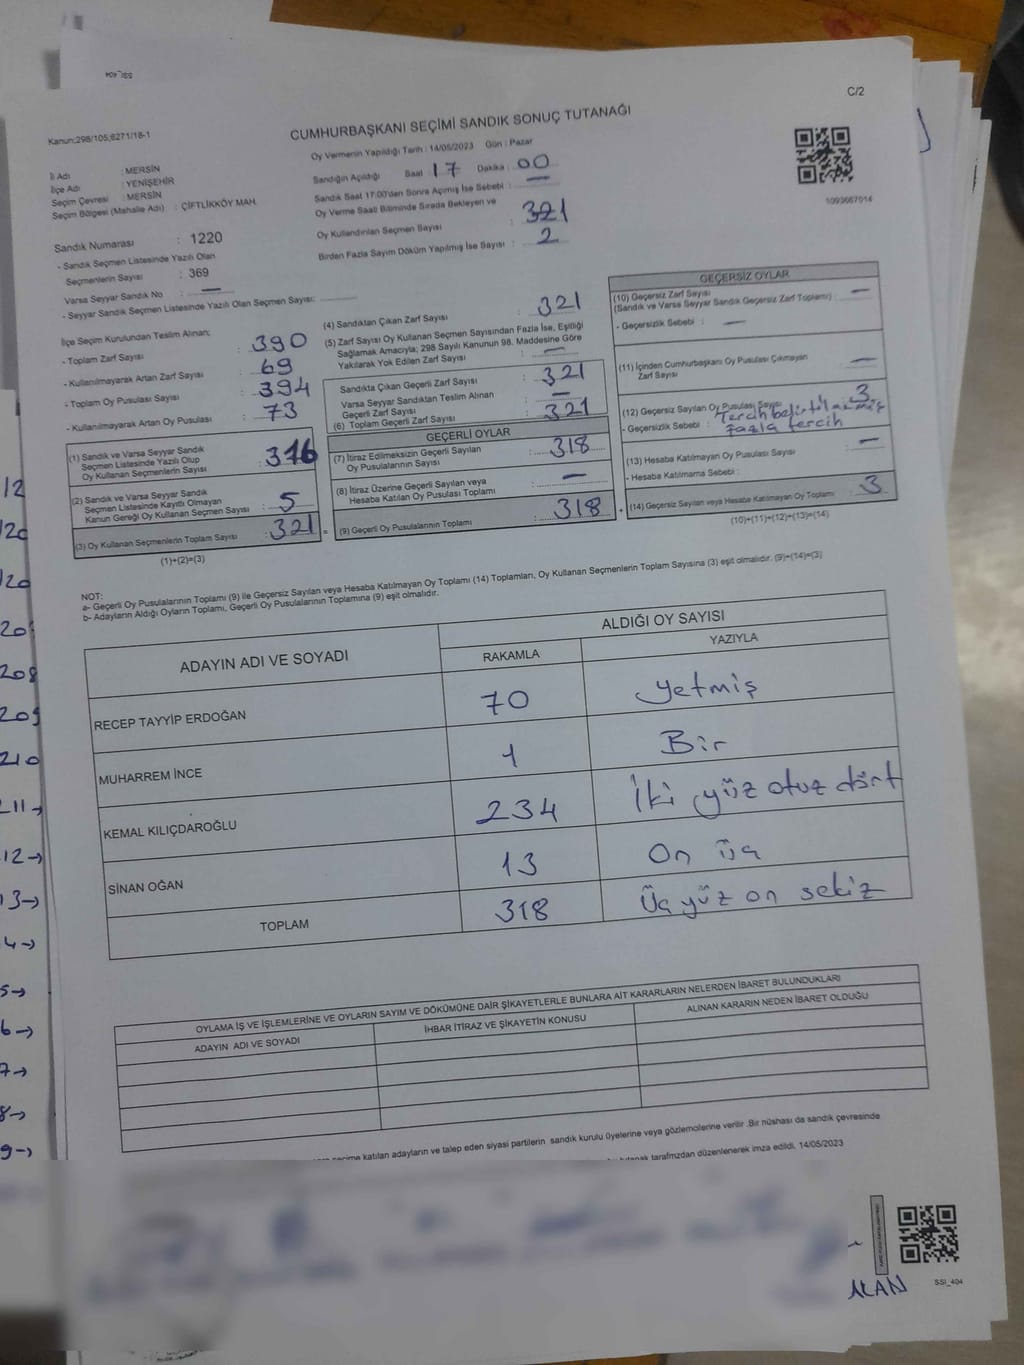 C/2
Kanun:298/105;6271/18-1
CUMHURBAŞKANI SEÇİMİ SANDIK SONUÇ TUTANAĞI
Oy Vermenin Yapıldığı Tarih : 14/05/2023 Gün : Pazar
İl Adı : MERSİN
İlçe Adı : YENİŞEHİR
Seçim Çevresi : MERSİN
Seçim Bölgesi (Mahalle Adı) : ÇİFTLİKKÖY MAH.
Sandığın Açıldığı Saat : 17 Dakika : 00
Sandık Saat 17:00'dan Sonra Açımış İse Sebebi : —
Oy Verme Saati Bitiminde Sırada Bekleyen ve
Oy Kullandırılan Seçmen Sayısı : 321
Birden Fazla Sayım Döküm Yapılmış İse Sayısı : 2
1093667014
Sandık Numarası : 1220
- Sandık Seçmen Listesinde Yazılı Olan
Seçmenlerin Sayısı : 369
Varsa Seyyar Sandık No : —
- Seyyar Sandık Seçmen Listesinde Yazılı Olan Seçmen Sayısı:
İlçe Seçim Kurulundan Teslim Alınan:
- Toplam Zarf Sayısı : 390
- Kullanılmayarak Artan Zarf Sayısı : 69
- Toplam Oy Pusulası Sayısı : 394
- Kullanılmayarak Artan Oy Pusulası : 73
(1) Sandık ve Varsa Seyyar Sandık
Seçmen Listesinde Yazılı Olup
Oy Kullanan Seçmenlerin Sayısı : 316
(2) Sandık ve Varsa Seyyar Sandık
Seçmen Listesinde Kayıtlı Olmayan
Kanun Gereği Oy Kullanan Seçmen Sayısı : 5
(3) Oy Kullanan Seçmenlerin Toplam Sayısı : 321
(1)+(2)=(3)
(4) Sandıktan Çıkan Zarf Sayısı : 321
(5) Zarf Sayısı Oy Kullanan Seçmen Sayısından Fazla İse, Eşitliği
Sağlamak Amacıyla; 298 Sayılı Kanunun 98. Maddesine Göre
Yakılarak Yok Edilen Zarf Sayısı : —
Sandıkta Çıkan Geçerli Zarf Sayısı : 321
Varsa Seyyar Sandıktan Teslim Alınan
Geçerli Zarf Sayısı : —
(6) Toplam Geçerli Zarf Sayısı : 321
GEÇERLİ OYLAR
(7) İtiraz Edilmeksizin Geçerli Sayılan
Oy Pusulalarının Sayısı : 318
(8) İtiraz Üzerine Geçerli Sayılan veya
Hesaba Katılan Oy Pusulası Toplamı : —
(9) Geçerli Oy Pusulalarının Toplamı : 318
GEÇERSİZ OYLAR
(10) Geçersiz Zarf Sayısı
(Sandık ve Varsa Seyyar Sandık Geçersiz Zarf Toplamı) : —
- Geçersizlik Sebebi : —
(11) İçinden Cumhurbaşkanı Oy Pusulası Çıkmayan
Zarf Sayısı : —
(12) Geçersiz Sayılan Oy Pusulası Sayısı : 3
- Geçersizlik Sebebi : Tercih belirtilmemiş
fazla tercih
(13) Hesaba Katılmayan Oy Pusulası Sayısı : —
- Hesaba Katılmama Sebebi :
(14) Geçersiz Sayılan veya Hesaba Katılmayan Oy Toplamı : 3
(10)+(11)+(12)+(13)=(14)
NOT:
a- Geçerli Oy Pusulalarının Toplamı (9) ile Geçersiz Sayılan veya Hesaba Katılmayan Oy Toplamı (14) Toplamları, Oy Kullanan Seçmenlerin Toplam Sayısına (3) eşit olmalıdır. (9)+(14)=(3)
b- Adayların Aldığı Oyların Toplamı, Geçerli Oy Pusulalarının Toplamına (9) eşit olmalıdır.
ADAYIN ADI VE SOYADI
ALDIĞI OY SAYISI
RAKAMLA YAZIYLA
RECEP TAYYİP ERDOĞAN 70 yetmiş
MUHARREM İNCE 1 Bir
KEMAL KILIÇDAROĞLU 234 İki yüz otuz dört
SİNAN OĞAN 13 On üç
TOPLAM 318 Üç yüz on sekiz
OYLAMA İŞ VE İŞLEMLERİNE VE OYLARIN SAYIM VE DÖKÜMÜNE DAİR ŞİKAYETLERLE BUNLARA AİT KARARLARIN NELERDEN İBARET BULUNDUKLARI
ADAYIN ADI VE SOYADI İHBAR İTİRAZ VE ŞİKAYETİN KONUSU ALINAN KARARIN NEDEN İBARET OLDUĞU
seçime katılan adayların ve talep eden siyasi partilerin sandık kurulu üyelerine veya gözlemcilerine verilir .Bir nüshası da sandık çevresinde
tutanak tarafımzdan düzenlenerek imza edildi. 14/05/2023
ALAN
SSI_404